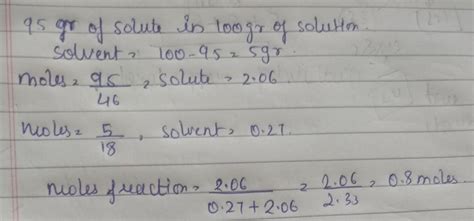 95 gr of solute in 100gr of solution.
solvent = 100-95 = 5gr.
moles = 95/46, solute = 2.06
moles = 5/18, solvent = 0.27.
moles fraction = 2.06/0.27+2.06 = 2.06/2.33 = 0.8 moles.